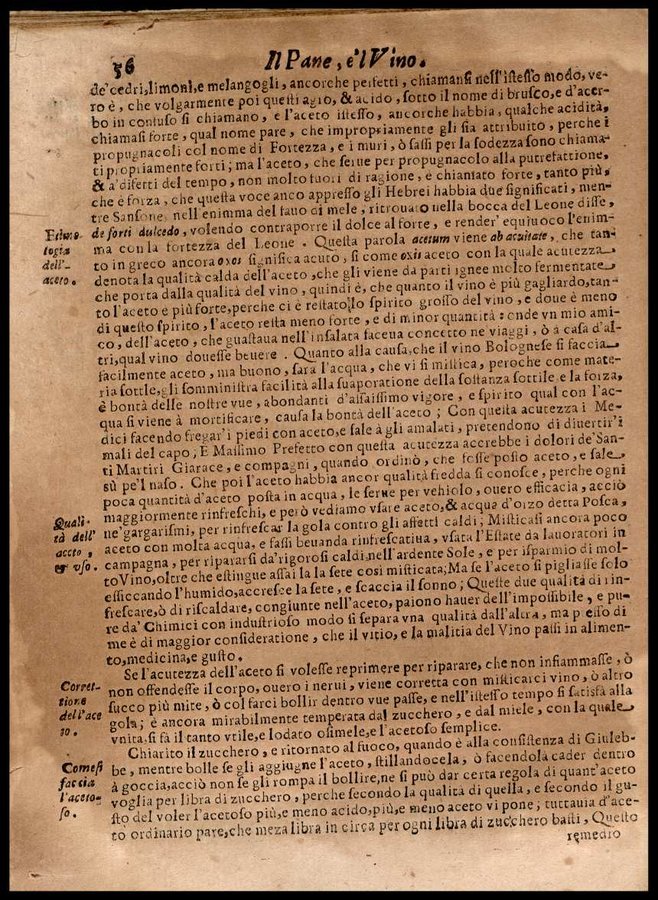 56
Il Pane, e'l Vino.
de' cedri, limoni, e melangogli, ancorche perfetti, chiamansi nell'istesso modo, ve-
ro è, che volgarmente poi questi agro, & acido, sotto il nome di brusco, e d'acer-
bo in confuso si chiamano, e l'aceto istesso, ancorche habbia, qualche acidità,
chiamasi forte, qual nome pare, che impropriamente gli sia attribuito, perche i
propugnacoli col nome di Fortezza, e i muri, ò sassi per la sodezza sono chiama-
ti propriamente forti; ma l'aceto, che serue per propugnacolo alla putrefattione,
& a'difetti del tempo, non molto fuori di ragione, è chiamato forte, tanto più,
che è forza, che questa voce anco appresso gli Hebrei habbia due significati, men-
tre Sansone nell'enimma del fauo di mele, ritrouato nella bocca del Leone disse,
de forti dulcedo, volendo contraporre il dolce al forte, e render' equiuoco l'enim-
ma con la fortezza del Leone. Questa parola acetum viene ab acuitate, che tan-
to in greco ancora oxos significa acuto, si come oxis aceto con la quale acutezza
denota la qualità calda dell'aceto, che gli viene da parti ignee molto fermentate
che porta dalla qualità del vino, quindi è, che quanto il vino è più gagliardo, tan-
to l'aceto e più forte, perche ci è restato lo spirito grosso del vino, e doue è meno
di questo spirito, l'aceto resta meno forte, e di minor quantità: onde vn mio ami-
co, dell'aceto, che guastaua nell'insalata faceua concetto ne viaggi, ò à casa d'al-
tri, qual vino douesse beuere. Quanto alla causa, che il vino Bolognese si faccia
facilmente aceto, ma buono, sarà l'acqua, che vi si mistica, peroche come mate-
ria sottile, gli somministra facilità alla suaporatione della sostanza sottile e la forza,
è bontà delle nostre vue, abondanti d'assaissimo vigore, e spirito qual con l'ac-
qua si viene à mortificare, causa la bontà dell'aceto; Con questa acutezza i Me-
dici facendo fregar'i piedi con aceto, e sale à gli amalati, pretendono di diuertir'i
mali del capo; E Massimo Prefetto con questa acutezza accrebbe i dolori de'San-
ti Martiri Giarace, e compagni, quando ordinò, che fosse posto aceto, e sale
sù pe'l naso. Che poi l'aceto habbia ancor qualità fredda si conosce, perche ogni
poca quantità d'aceto posta in acqua, le serue per vehiolo, ouero efficacia, acciò
maggiormente rinfreschi, e però vediamo vsare aceto, & acqua d'orzo detta Posca,
ne'gargarismi, per rinfrescar la gola contro gli affetti caldi; Misticasi ancora poco
aceto con molta acqua, e fassi beuanda rinfrescatiua, vsata l'Estate da lauoratori in
campagna, per ripararsi da'rigorosi caldi nell'ardente Sole, e per isparmio di mol-
to Vino, oltre che estingue assai la la sete così misticata; Ma se l'aceto si pigliasse solo
essiccando l'humido, accresce la sete, e scaccia il sonno; Queste due qualità di rin-
frescare, ò di riscaldare, congiunte nell'aceto, paiono hauer dell'impossibile, e pu-
re da' Chimici con industrioso modo si separa vna qualità dall'altra, ma presso di
me è di maggior consideratione, che il vitio, e la malitia del Vino passi in alimen-
to, medicina, e gusto.
Se l'acutezza dell'aceto si volesse reprimere per riparare, che non infiammasse, ò
non offendesse il corpo, ouero i nerui, viene corretta con misticarci vino, ò altro
succo più mite, ò col farci bollir dentro vue passe, e nell'istesso tempo si satisfà alla
gola; è ancora mirabilmente temperata dal zucchero, e dal miele, con la quale
vnita si fà il tanto vtile, e lodato osimele, e l'acetoso semplice.
Chiarito il zucchero, e ritornato al fuoco, quando è alla consistenza di Giuleb-
be, mentre bolle se gli aggiugne l'aceto, stillandocela, ò facendola cader dentro
à goccia, acciò non se gli rompa il bollire, ne si può dar certa regola di quant'aceto
voglia per libra di zucchero, perche secondo la qualità di quella, e secondo il gu-
sto del voler l'acetoso più, e meno acido, più, e meno aceto vi pone; tuttauia d'ace-
to ordinario pare, che meza libra in circa per ogni libra di zucchero basti, Questo
remedio
Etimo-
logia
dell'-
aceto.
Quali-
tà dell'
aceto,
& vso.
Corret-
tione
dell'ace
to.
Comesi
faccia
l'aceto-
so.